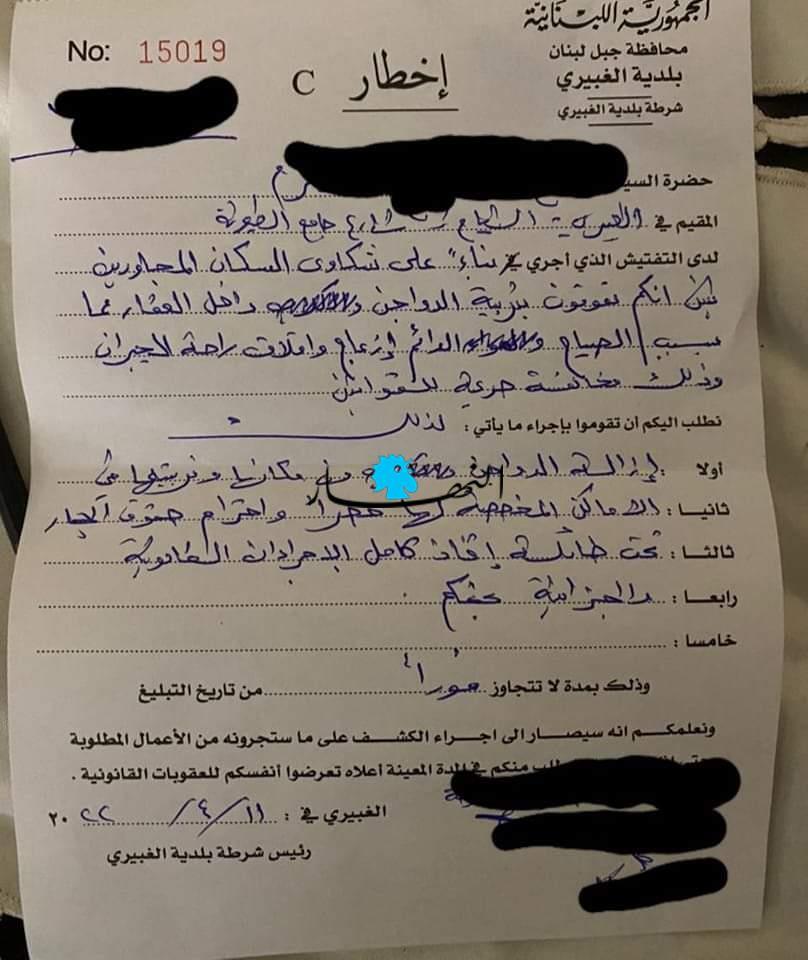 الجمهورية اللبنانية
محافظة جبل لبنان
بلدية الغبيري
شرطة بلدية الغبيري
No: 15019
إخطار C
حضرة السيد
المقيم في الغبيري - الشياح شارع جامع الطيونة
لدى التفتيش الذي أجري في بناءً على شكاوى السكان المجاورين
تبين انكم تقومون بتربية الدواجن داخل العقار مما
يسبب الصياح الدائم إزعاج واقلاق راحة الجيران
وذلك مخالفة للقوانين
نطلب اليكم أن تقوموا بإجراء ما يأتي: لذلك
أولا : إزالة الدواجن من مكانها وتربيتها في
ثانيا : الاماكن المخصصة لها حصراً واحترام حقوق الجار
ثالثا : تحت طائلة إتخاذ كامل الاجراءات القانونية
رابعا : والجزائية بحقكم .
خامسا :
وذلك بمدة لا تتجاوز فوراً من تاريخ التبليغ
ونعلمكم انه سيصار الى اجراء الكشف على ما ستجرونه من الأعمال المطلوبة
منكم في المدة المعينة أعلاه تعرضوا أنفسكم للعقوبات القانونية .
الغبيري في : ١١ / ٤ / ٢٠٢٢
رئيس شرطة بلدية الغبيري
النهار